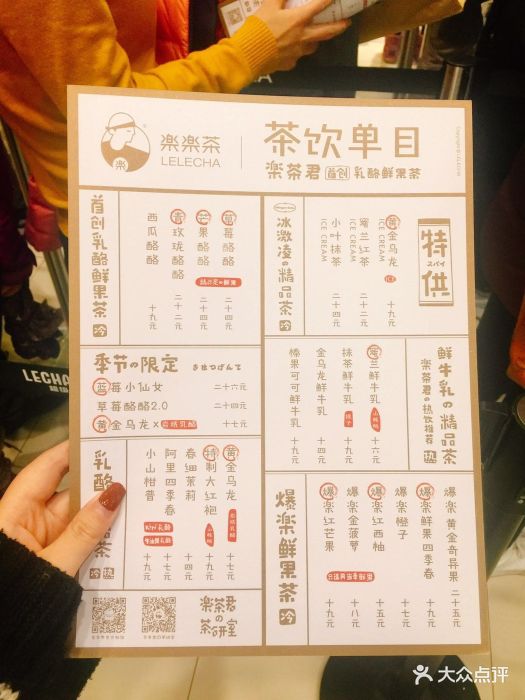 楽楽茶
LELECHA
茶饮单目
楽茶君 首创 乳酪鲜果茶
首创乳酪鲜果茶 冷
莓莓酪酪 二十四元
芒果酪酪 二十四元
青玫珑酪酪 二十二元
西瓜酪酪 十九元
冰激凌の精品茶
特供
スパイ
黄金乌龙 ICE CREAM 十九元
蜜兰红茶 ICE CREAM 二十二元
小叶抹茶 ICE CREAM 二十四元
季节の限定
蓝莓小仙女 二十六元
草莓酪酪2.0 二十四元
黄金乌龙× 岩烧乳酪 十七元
鲜牛乳の精品茶
楽茶君の热饮推荐 热
蜜兰鲜牛乳 十六元
抹茶鲜牛乳 十九元
金乌龙鲜牛乳 十九元
榛果可可鲜牛乳 十九元
乳酪
茶
冷 热
黄金乌龙 岩烧乳酪 十七元
特制大红袍 十九元
春细茉莉
阿里四季春 十七元
小山柑普 十九元
爆楽鲜果茶 冷
爆楽黄金奇异果 二十五元
爆楽鲜果四季春 十九元
爆楽橙子 十七元
爆楽红西柚 十五元
爆楽金菠萝 十八元
爆楽红芒果 十九元
楽茶君
茶の研室
LECHA
大众点评